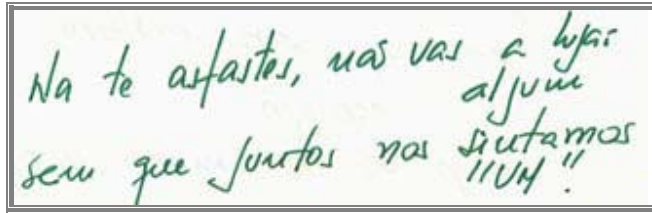 Na te asfastes, nas vas a lugar
algum
sem que juntos nos sintamos
"UM".